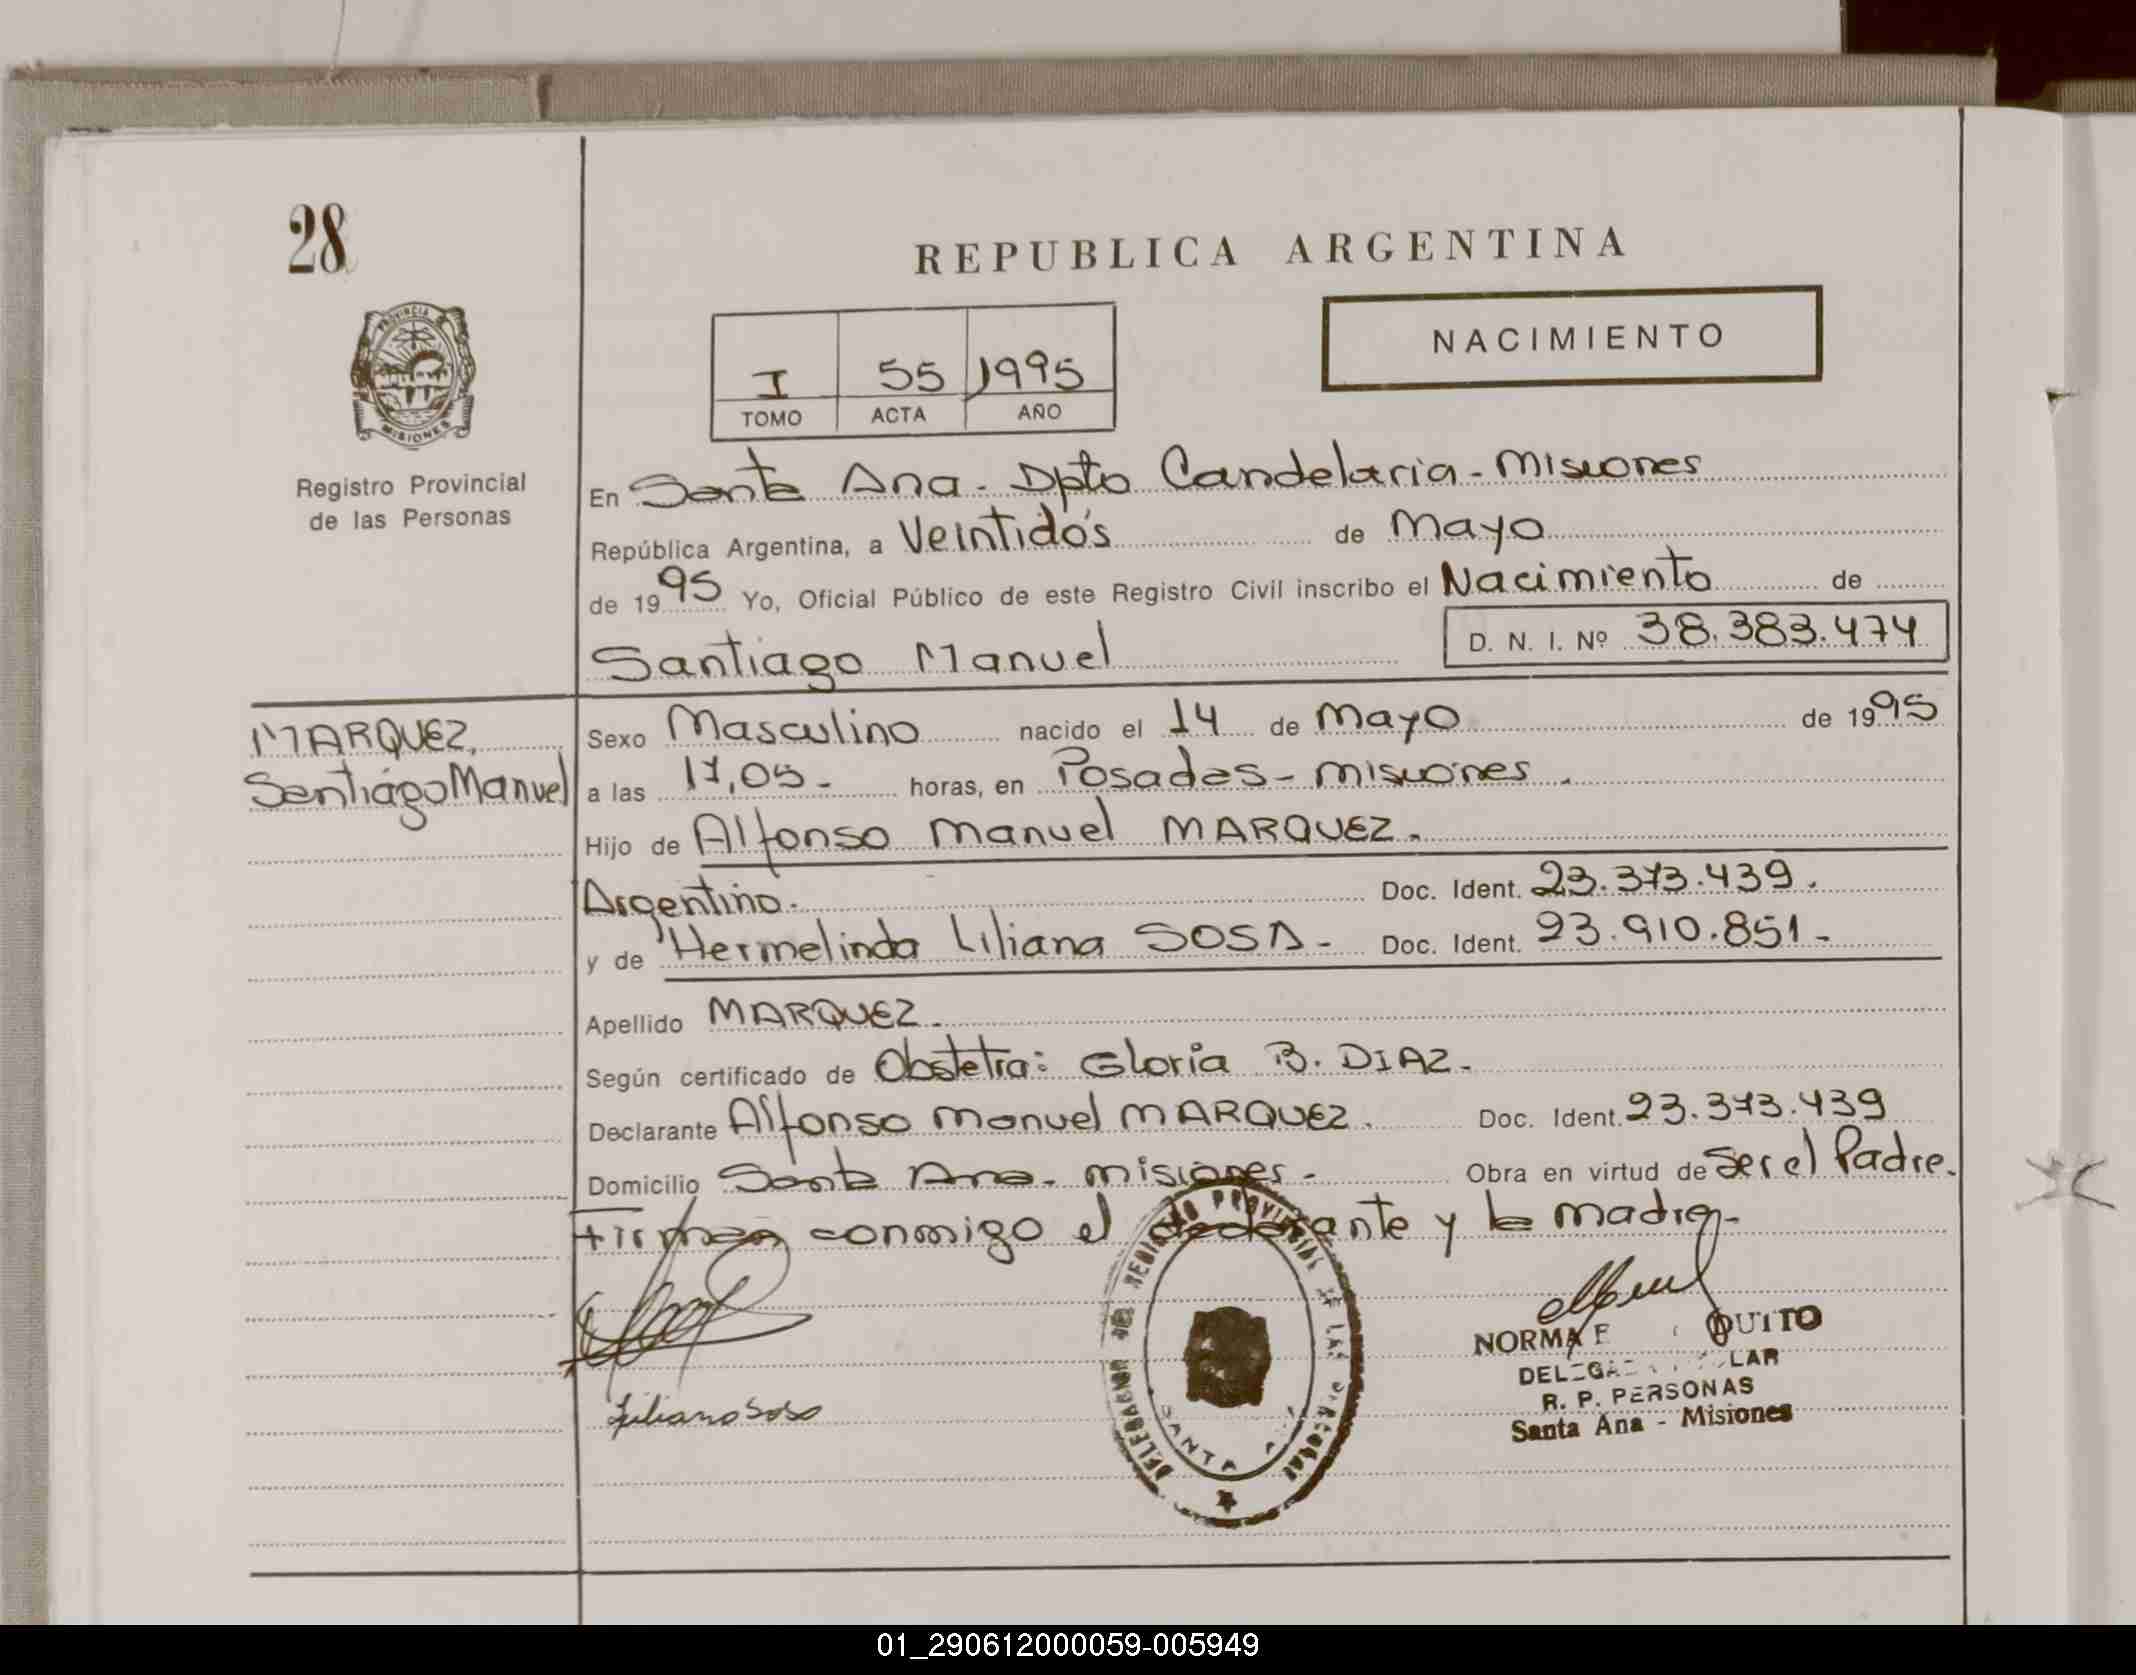 28
REPUBLICA ARGENTINA
NACIMIENTO
I 55 1995
TOMO ACTA AÑO
PROVINCIA DE
MISIONES
Registro Provincial
de las Personas
En Santa Ana - Dpto Candelaria - Misiones
República Argentina, a Veintidós de Mayo
de 1995 Yo, Oficial Público de este Registro Civil inscribo el Nacimiento de
Santiago Manuel D. N. I. Nº 38.383.474
MARQUEZ,
Santiago Manuel
Sexo Masculino nacido el 14 de Mayo de 1995
a las 17,05 - horas, en Posadas - Misiones.
Hijo de Alfonso Manuel MARQUEZ.
Argentino. Doc. Ident. 23.373.439.
y de Hermelinda Liliana SOSA - Doc. Ident. 23.910.851 -
Apellido MARQUEZ.
Según certificado de Obstetra: Gloria B. DIAZ -
Declarante Alfonso Manuel MARQUEZ. Doc. Ident. 23.373.439
Domicilio Santa Ana - Misiones - Obra en virtud de Ser el Padre.
Firman conmigo el declarante y la madre -
Liliana Sosa
DELEGACION DEL REGISTRO PROVINCIAL DE LAS PERSONAS
SANTA ANA
NORMA
R. P. PERSONAS
Santa Ana - Misiones
01_290612000059-005949